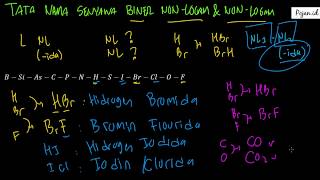 TATA NAMA SENYAWA BINER NON-LOGAM & NON-LOGAM
Pijar.id
L NL (-ida)
NL ? NL ?
H Br BrH
NL2 - NL1 (-ida)
B - Si - As - C - P - N - H - S - I - Br - Cl - O - F
H Br HBr : Hidrogen Bromida
F Br BrF : Bromin Flourida
HI : Hidrogen Iodida
ICl : Iodin Klorida
H Br HBr
Br F BrF
C O CO
CO2